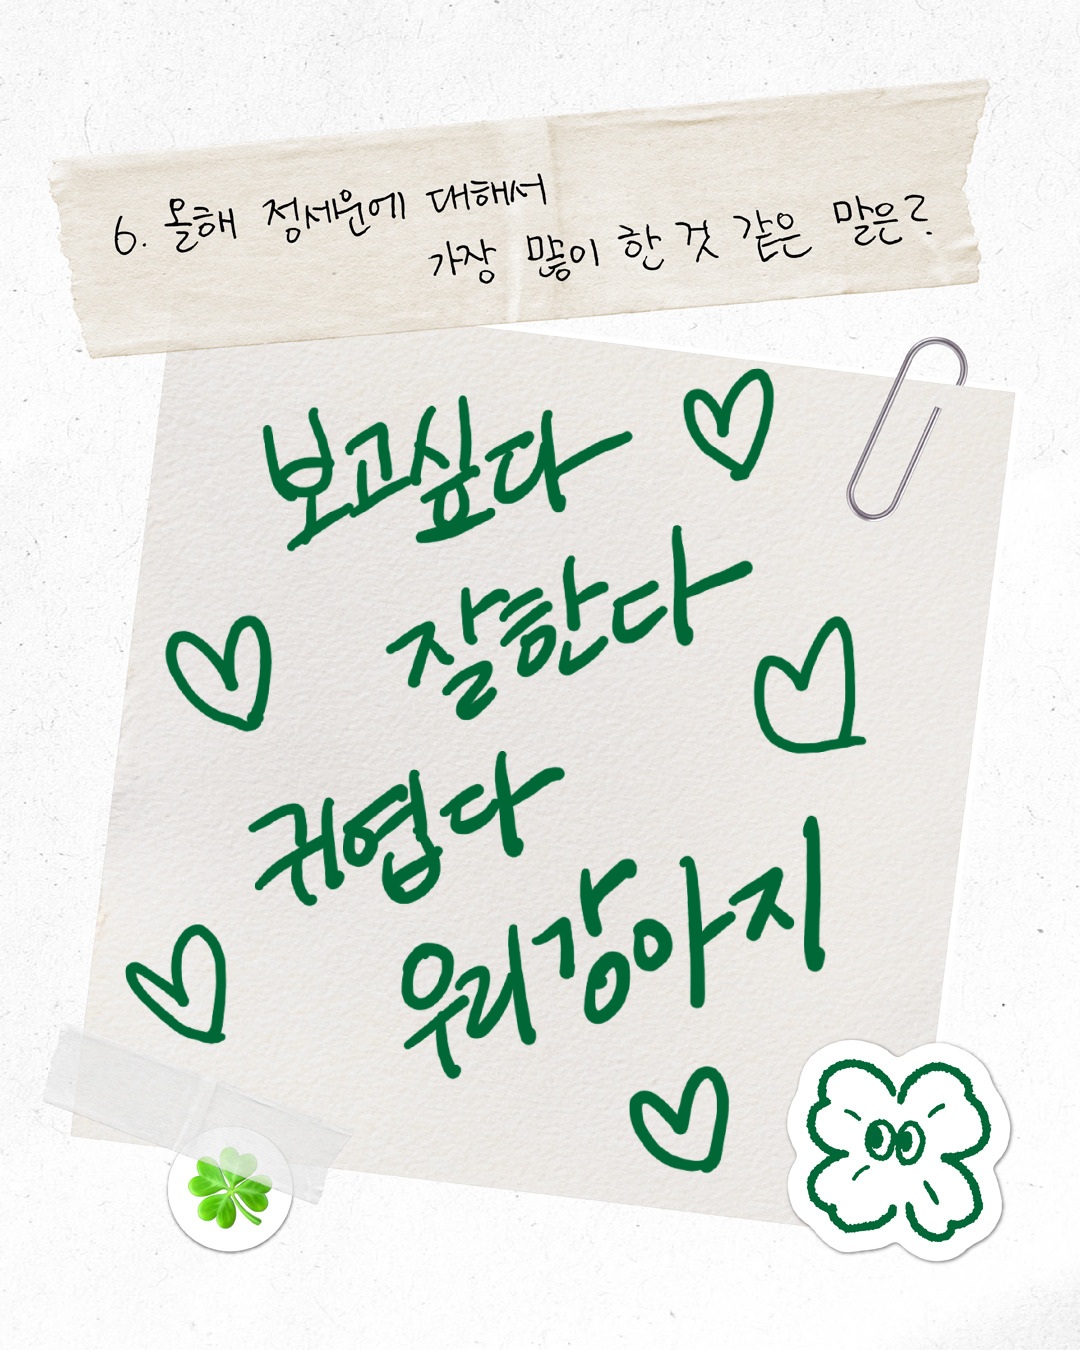 6. 올해 정세운에 대해서
가장 많이 한 것 같은 말은?
보고싶다
잘한다
귀엽다
우리강아지